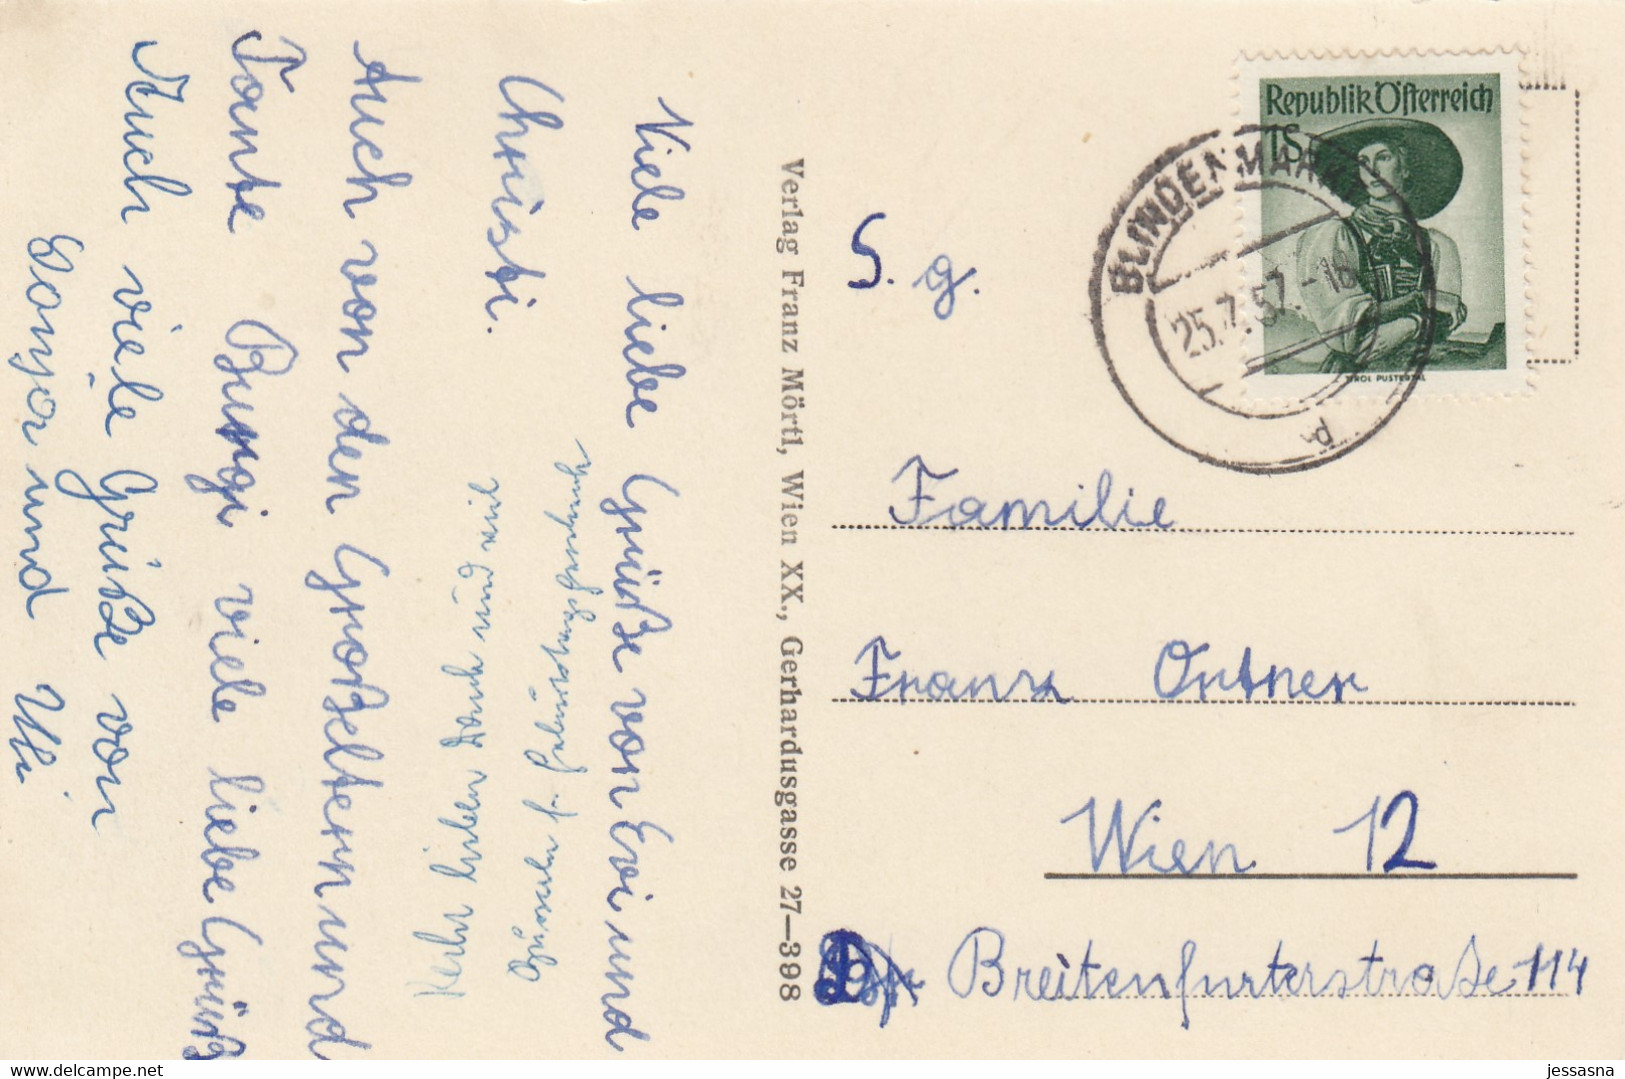 Viele liebe Grüße von Evi und
Christi.
Auch von den Großeltern und
Tante Burgi viele liebe Grüße
Auch viele Grüße von
und Uli
lieben Dank und viel
f.
Verlag Franz Mörtl, Wien XX., Gerhardusgasse 27—398
Republik Österreich
1S
TIROL PUSTERTAL
BLINDENMARKT
25.7.57.-18
S. g.
Familie
Franz Ortner
Wien 12
Breitenfurterstraße 114
jessasna